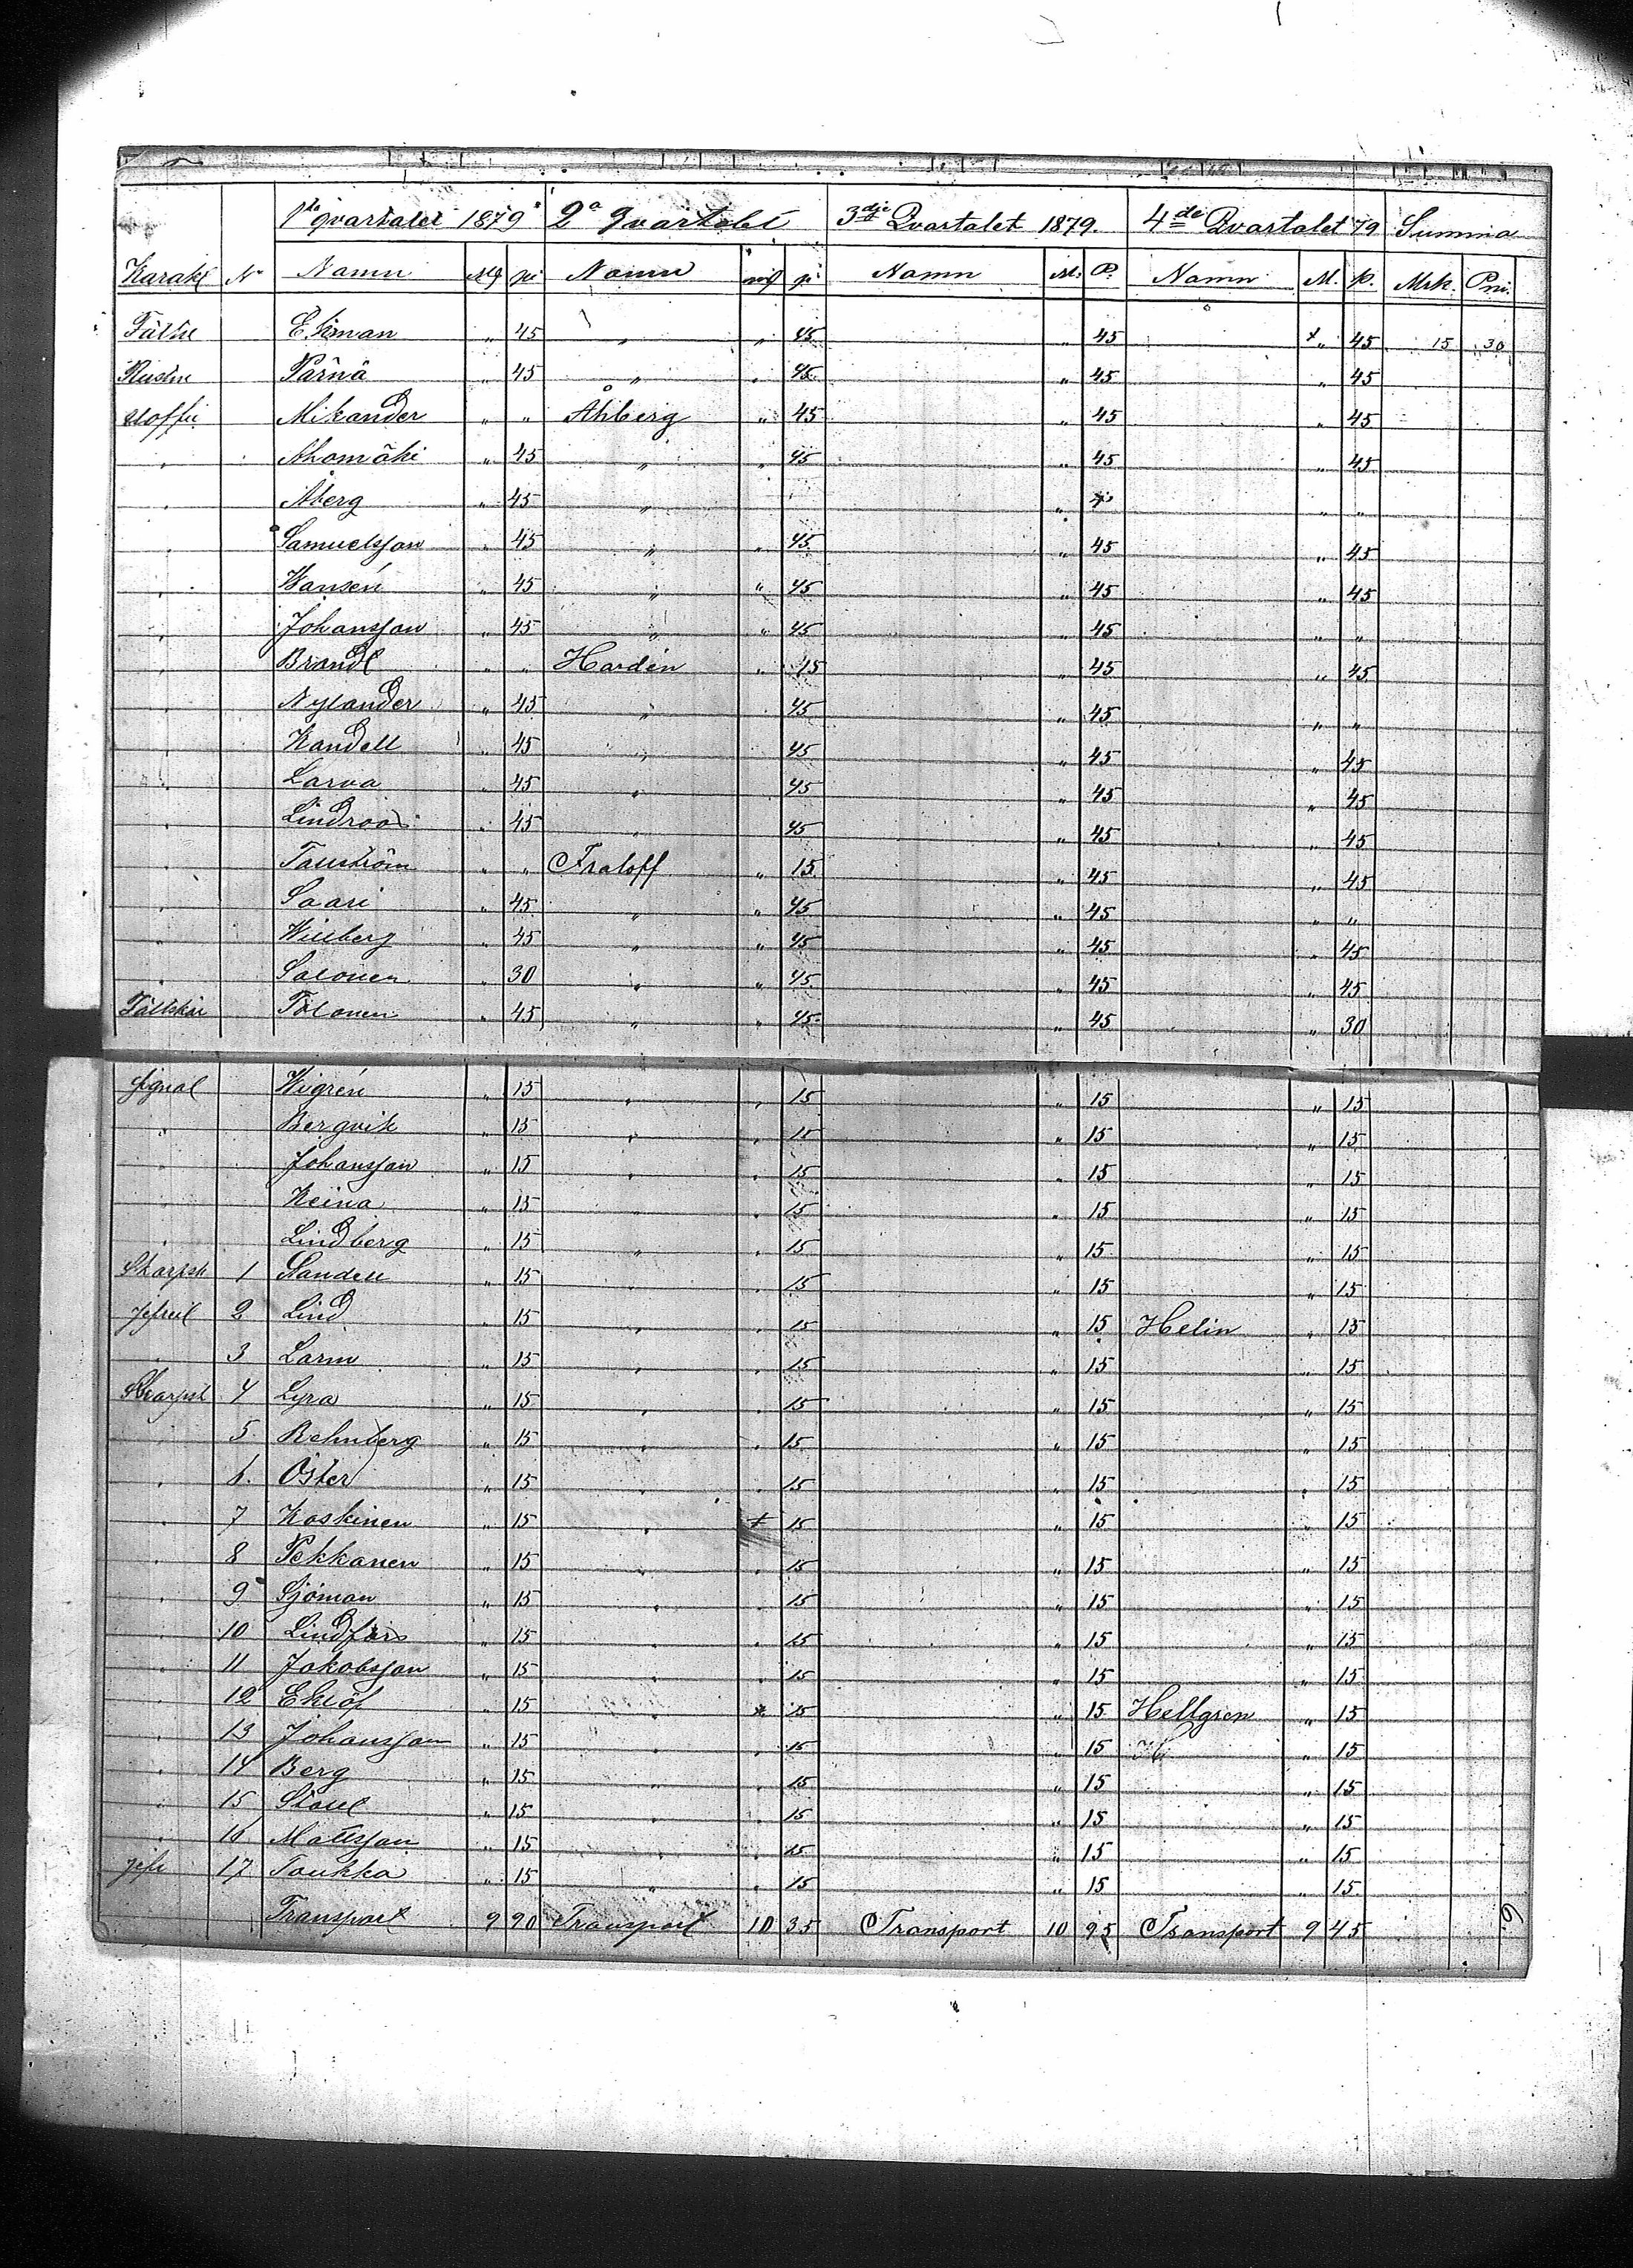 1sta qvartalet 1879 2a qvartalet 3dje Qvartalet 1879. 4de Qvartalet 79 Summa
Karakt No Namn Mf pi Namn mf pi Namn M. P. Namn M. p. Mrk. Pni.
Ekman " 45 " " 45 " 45 " 45 15 30
Pärnä " 45 " " 45 " 45 " 45
Mikander " " Åhberg " 45 " 45 " 45
" Ahomäki " 45 " " 45 " 45 " 45
" Åberg " 45 " " " "
" Samuelsson " 45 " " 45 " 45 " 45
" Wansén " 45 " " 45 " 45 " 45
" Johansson " 45 " " 45 " 45 " "
" Brandt " " Hardén " 15 " 45 " 45
" Nylander " 45 " " 45 " 45 " "
" Kandell " 45 " 45 " 45 " 45
" Larva " 45 " 45 " 45 " 45
" Lindroos " 45 " 45 " 45 " 45
" Tallström " " Fraloff " 15 " 45 " 45
" Saari " 45 " " 45 " 45 " "
" Willberg " 45 " " 45 " 45 " 45
" Salonen " 30 " " 45 " 45 " 45
Fältskär Tolonen " 45 " " 45 " 45 " 30
Signal Wigrén " 15 " " 15 " 15 " 15
" Bergvik " 15 " " 15 " 15 " 15
" Johansson " 15 " " 15 " 15 " 15
" Keina " 15 " " 15 " 15 " 15
" Lindberg " 15 " " 15 " 15 " 15
Skarpsk 1 Sandell " 15 " " 15 " 15 " 15
2 Lind " 15 " " 15 " 15 Helin " 15
" 3 Larm " 15 " " 15 " 15 " 15
Skarpsk 4 Lyra " 15 " " 15 " 15 " 15
" 5. Rehnberg " 15 " " 15 " 15 " 15
" 6. Öster " 15 " " 15 " 15 " 15
" 7 Koskinen " 15 " + 15 " 15 " 15
" 8 Pekkanen " 15 " " 15 " 15 " 15
" 9 Sjöman " 15 " " 15 " 15 " 15
" 10 Lindfors " 15 " " 15 " 15 " 15
" 11 Jakobsson " 15 " " 15 " 15 " 15
" 12 Eklöf " 15 " 15 " 15 Hellgren " 15
" 13 Johansson " 15 " " 15 " 15 " 15
" 14 Berg " 15 " " 15 " 15 " 15
" 15 Ståhl " 15 " " 15 " 15 " 15
" 16 Mattsson " 15 " " 15 " 15 " 15
17 Taukka " 15 " " 15 " 15 " 15
Transport 9 90 Transport 10 35 Transport 10 95 Transport 9 45
9